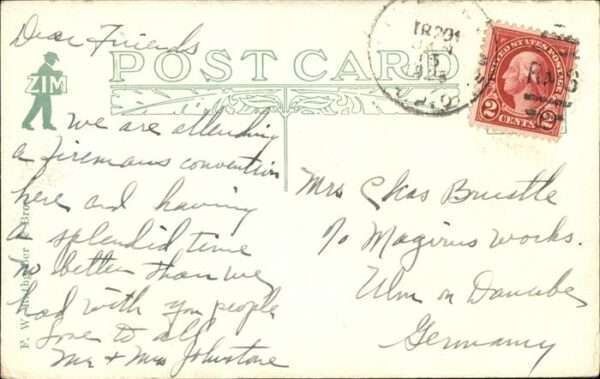 Dear Friends
ZIM
POST CARD
UNITED STATES POSTAGE
2 CENTS 2
we are attending
a firemans convention
here and having
a splendid time
no better than we
had with you people
Love to all
Mr + Mrs Johnstone
Mrs Chas Brustle
% Magirus Works.
Ulm on Danube
Germany
F. W.